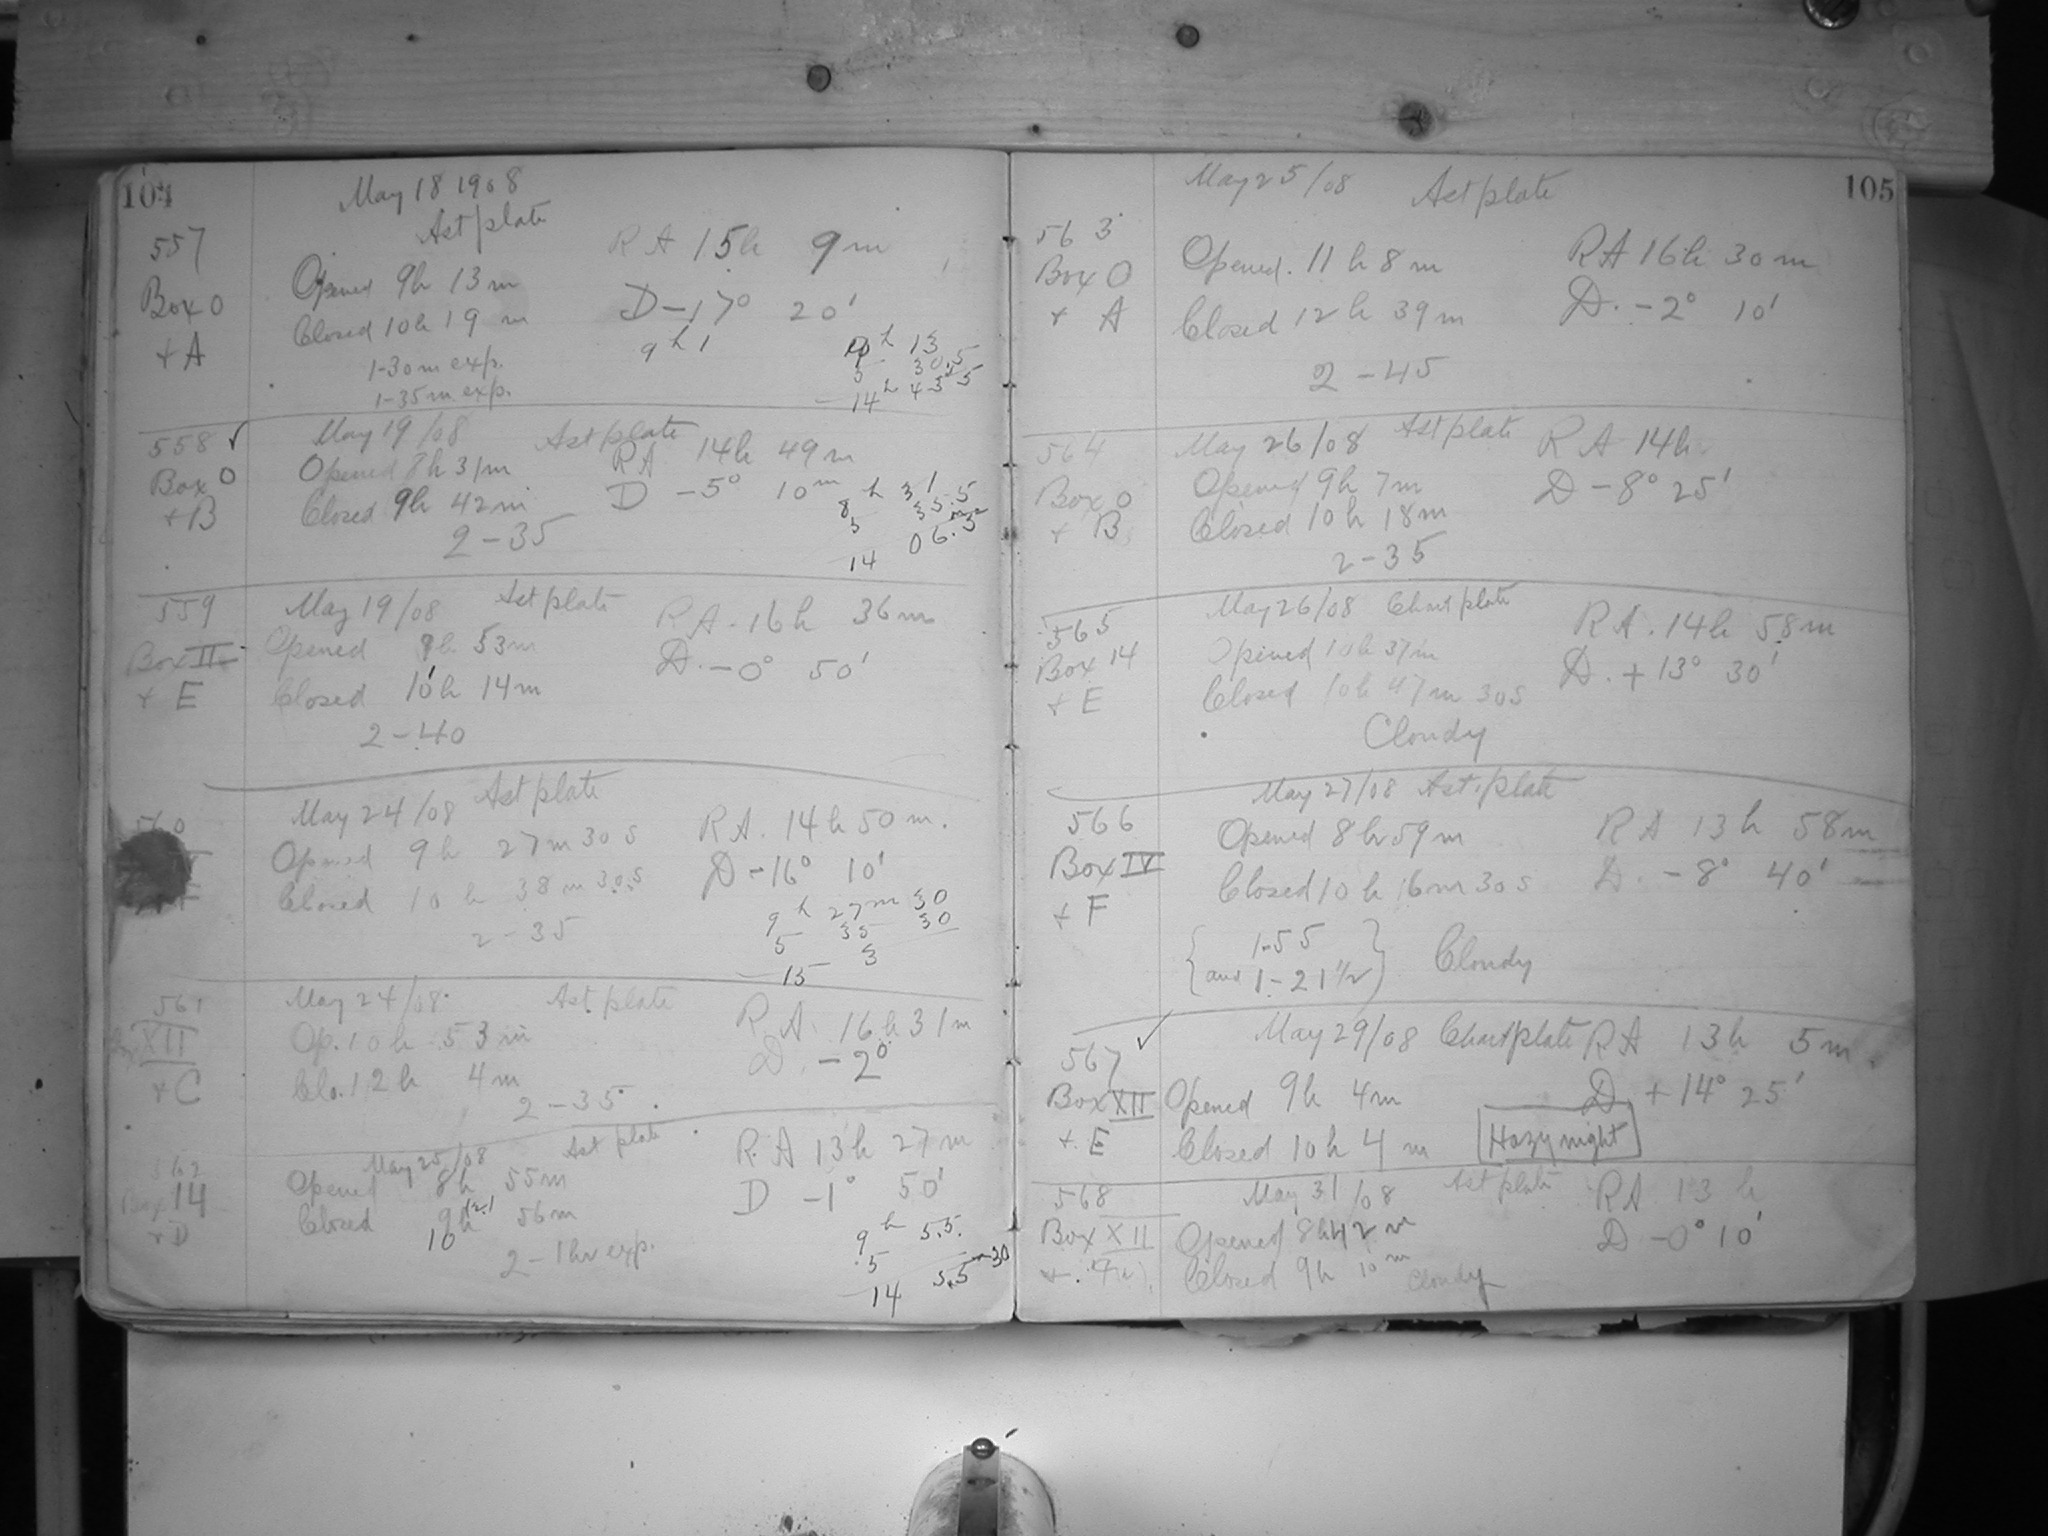 104
May 18 1908
Ast plate
557
Box 0
+ A
Opened 9h 13m
Closed 10h 19 m
1-30m exp.
1-35m exp.
RA 15h 9m
D -17° 20'
9h 1
h 13
5 30.5
14h 43.5
558 ✓
Box 0
+ B
May 19/08 Ast plate
Opened 8h 31m
Closed 9h 42m
2-35
RA 14h 49m
D -5° 10m
8h 31
5 35.5
14 06.5
559
Box II
+ E
May 19/08 Ast plate
Opened 9h 53m
Closed 10h 14m
2-40
RA. 16h 36m
D. -0° 50'
560
May 24/08 Ast plate
Opened 9h 27m 30s
Closed 10h 38m 30s
2-35
RA. 14h 50m.
D -16° 10'
9h 27m 30
5 35 30
15 3
561
Box XII
+ C
May 24/08. Ast plate
Op. 10h 53m
Clo. 12h 4m
2-35.
RA. 16h 31m
D. -2°
562
Box 14
+ D
May 25/08 Ast plate
Opened 8h 55m
Closed 9h 56m
10h
2-1hr exp.
RA 13h 27m
D -1° 50'
9h 55.
5
14
105
May 25/08 Ast plate
563
Box 0
+ A
Opened. 11h 8m
Closed 12h 39m
2-45
RA 16h 30m
D. -2° 10'
564
Box 0
+ B
May 26/08 Ast plate
Opened 9h 7m
Closed 10h 18m
2-35
RA 14h.
D -8° 25'
565
Box 14
+ E
May 26/08 Chart plate
Opened 10h 37m
Closed 10h 47m 30s
Cloudy
RA. 14h 58m
D. +13° 30'
566
Box IV
+ F
May 27/08 Ast. plate
Opened 8h 59m
Closed 10h 16m 30s
1-55
and 1-21½
Cloudy
RA 13h 58m
D. -8° 40'
567 ✓
Box XII
+ E
May 29/08 Chart plate
Opened 9h 4m
Closed 10h 4m
Hazy night
RA 13h 5m.
D. +14° 25'
568
Box XII
May 31/08 Ast plate
Opened 8h 42m
Closed 9h 10m Cloudy
RA 13h
D -0° 10'